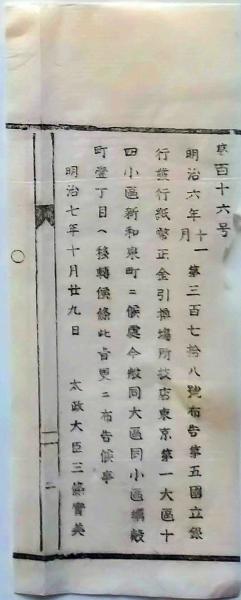 第百十六号
明治六年十一月第三百七拾八號布告第五國立銀
行發行紙幣正金引換場所該店東京第一大區十
四小區新和泉町ニ候處今般同大區同小區蠣殼
町壹丁目ヘ移轉候條此旨更ニ布告候事
明治七年十月廿九日 太政大臣三條實美
二